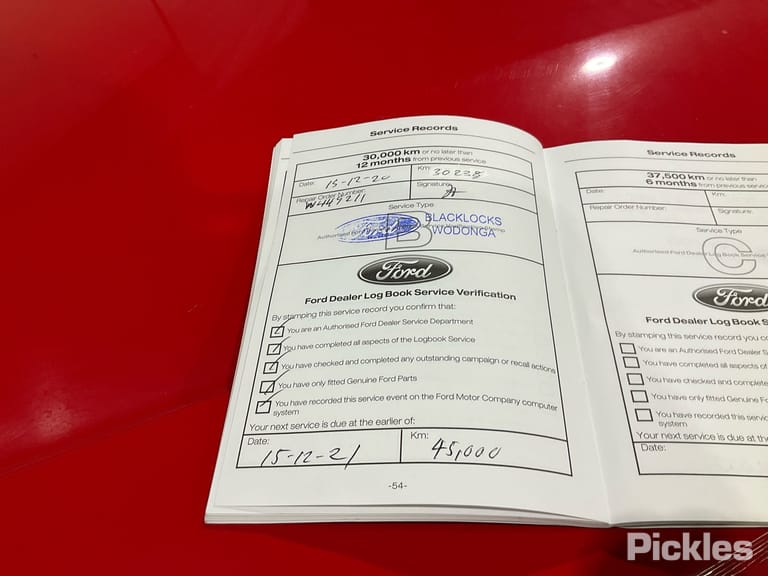 Service Records
30,000 km or no later than
12 months from previous service
Date: 15-12-20
Km: 30238
Repair Order Number:
W449211
Signature:
Service Type
B
BLACKLOCKS
WODONGA
Ford
Ford Dealer Log Book Service Verification
By stamping this service record you confirm that:
You are an Authorised Ford Dealer Service Department
You have completed all aspects of the Logbook Service
You have checked and completed any outstanding campaign or recall actions
You have only fitted Genuine Ford Parts
You have recorded this service event on the Ford Motor Company computer
system
Your next service is due at the earlier of:
Date:
15-12-21
Km:
45,000
-54-
Service Records
37,500 km or no later than
6 months from previous service
Date:
Km:
Repair Order Number:
Signature:
Service Type
C
Authorised Ford Dealer Log Book Service
Ford
Ford Dealer Log Book S
By stamping this service record you co
You are an Authorised Ford Dealer S
You have completed all aspects of
You have checked and complete
You have only fitted Genuine Fo
You have recorded this servic
system
Your next service is due at the
Date:
Pickles